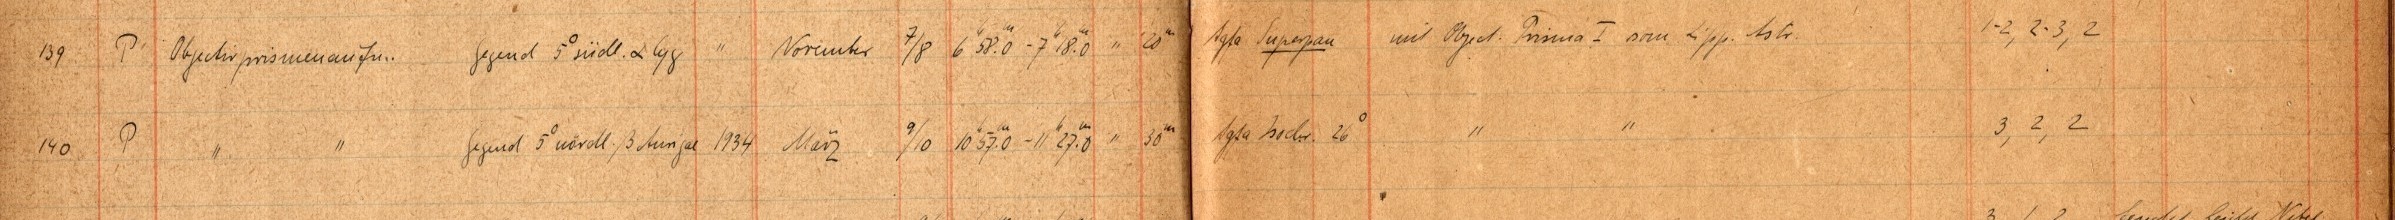 139 P Objectivprismenaufn.. Gegend 5° südl. α Cyg " November 7/8 6h 58m.0 - 7h 18m.0 " 20m Agfa Superpan mit Object. Prisma I vom Lipp. Astr. 1-2, 2-3, 2
140 P " " Gegend 5° nördl. β Aurigae 1934 März 9/10 10h 57m.0 - 11h 27m.0 " 30m Agfa Isochr. 26° " " 3, 2, 2